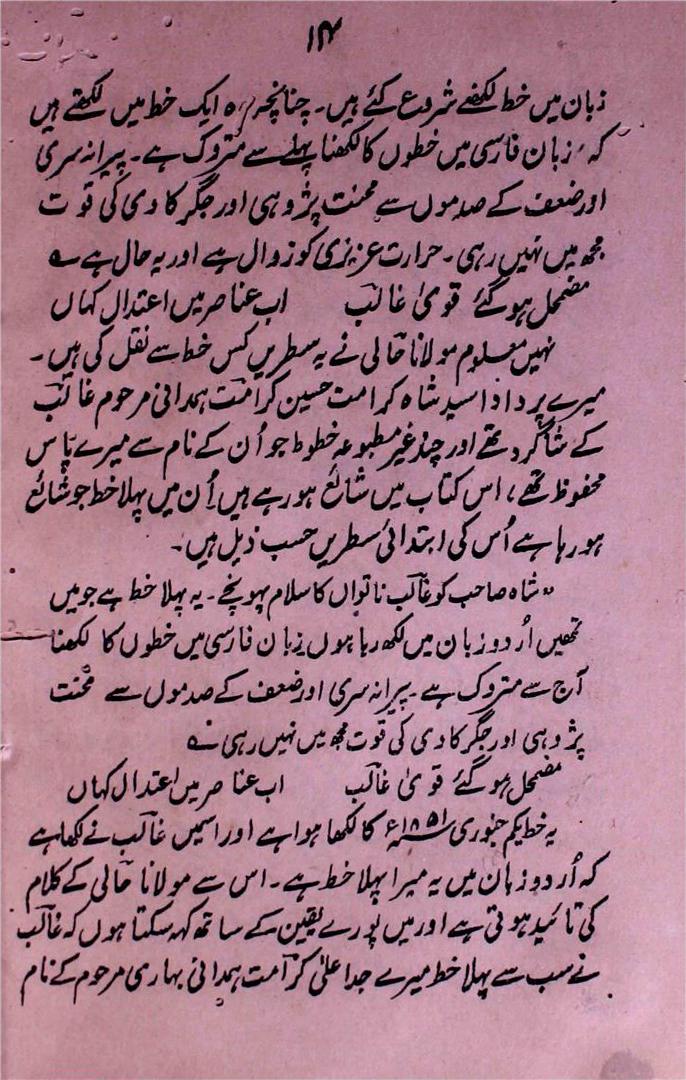 ۱۴
زبان میں خط لکھنے شروع کئے ہیں۔ چنانچہ وہ ایک خط میں لکھتے ہیں
کہ "زبان فارسی میں خطوں کا لکھنا پہلے سے متروک ہے۔ پیرانہ سری
اور ضعف کے صدموں سے محنت پژوہی اور جگر کاوی کی قوت
مجھ میں نہیں رہی۔ حرارت عزیزی کو زوال ہے اور یہ حال ہے ؎
مضمحل ہو گئے قویٰ غالب اب عناصر میں اعتدال کہاں
نہیں معلوم مولانا حالی نے یہ سطریں کس خط سے نقل کی ہیں۔
میرے پردادا سید شاہ کرامت حسین کرامت ہمدانی مرحوم غالب
کے شاگرد تھے اور چند غیر مطبوعہ خطوط جو اُن کے نام سے میرے پاس
محفوظ تھے، اس کتاب میں شائع ہو رہے ہیں اُن میں پہلا خط جو شائع
ہو رہا ہے اُس کی ابتدائی سطریں حسب ذیل ہیں۔
"شاہ صاحب کو غالب ناتواں کا سلام پہونچے۔ یہ پہلا خط ہے جو میں
تمھیں اُردو زبان میں لکھ رہا ہوں زبان فارسی میں خطوں کا لکھنا
آج سے متروک ہے۔ پیرانہ سری اور ضعف کے صدموں سے محنت
پژوہی اور جگر کاوی کی قوت مجھ میں نہیں رہی ؎
مضمحل ہو گئے قویٰ غالب اب عناصر میں اعتدال کہاں
یہ خط یکم جنوری ۱۸۵۱ء کا لکھا ہوا ہے اور اسمیں غالب نے لکھا ہے
کہ اُردو زبان میں یہ میرا پہلا خط ہے۔ اس سے مولانا حالی کے کلام
کی تائید ہوتی ہے اور میں پورے یقین کے ساتھ کہہ سکتا ہوں کہ غالب
نے سب سے پہلا خط میرے جد اعلیٰ کرامت ہمدانی بہاری مرحوم کے نام